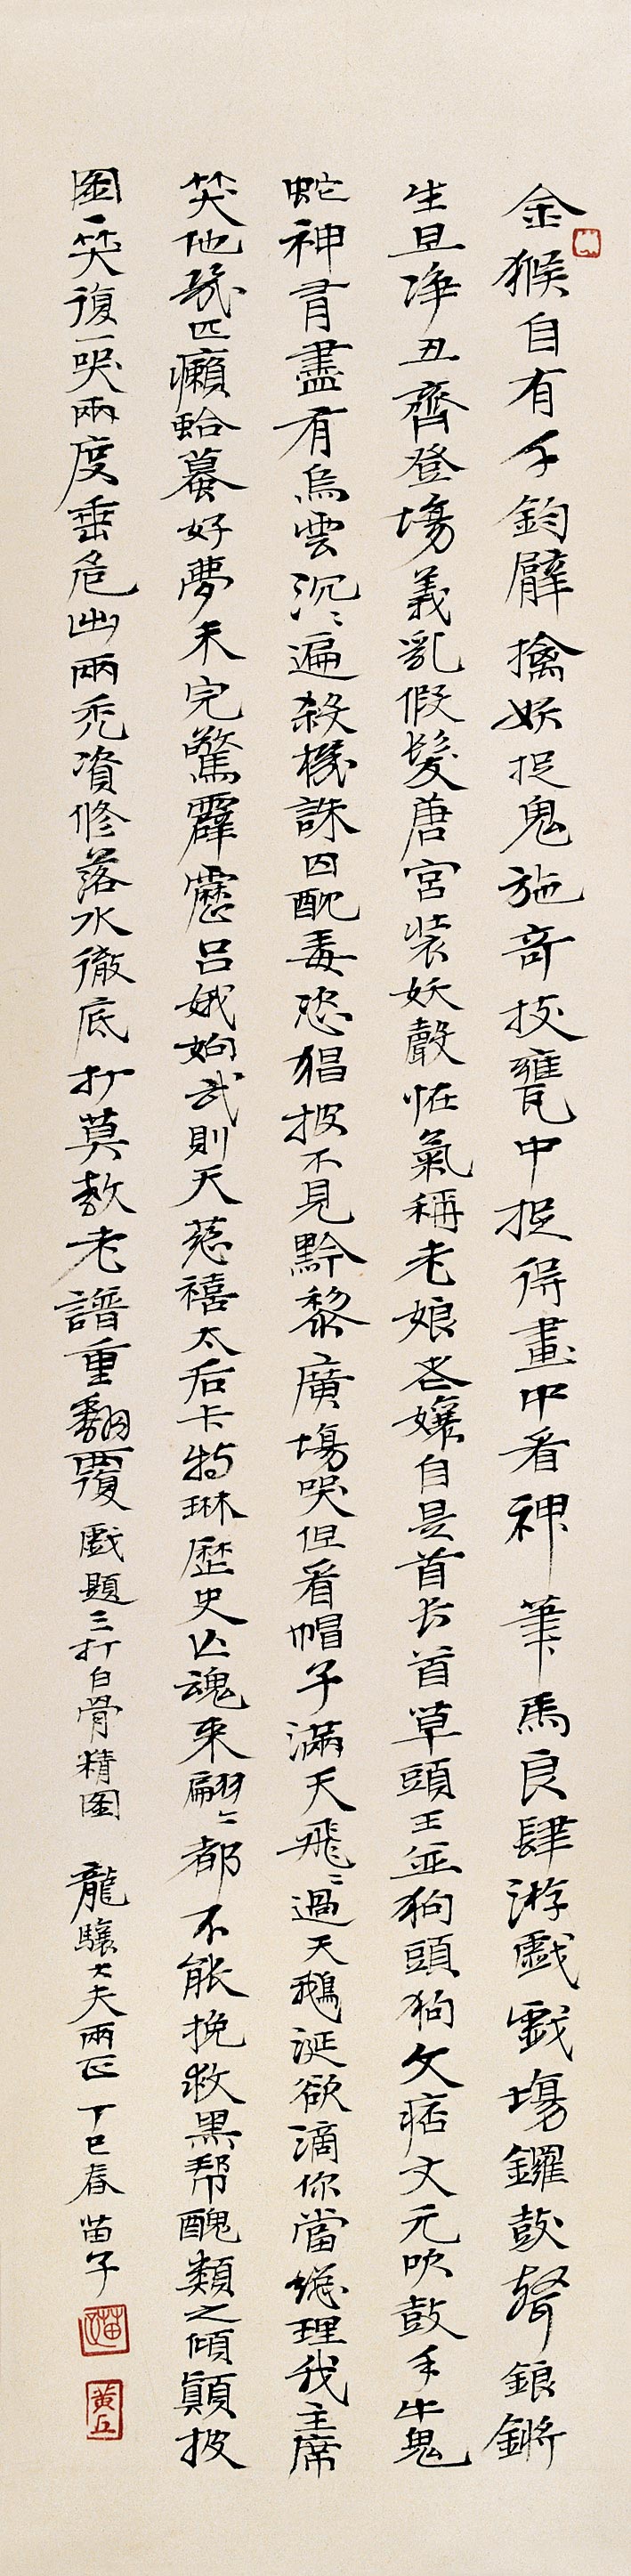 金猴自有千鈞臂擒妖捉鬼施奇技甕中捉得畫中看神筆馬良肆游戲戲場鑼鼓聲鋃鏘
生旦净丑齊登場義乳假髮唐宮裝妖聲怪氣稱老娘老孃自是首長首草頭王並狗頭狗父痞文元吹鼓手牛鬼
蛇神胥盡有烏雲沉〻遍殺機誅四醜毒恣猖披不見黔黎廣場哭但看帽子滿天飛〻過天鵝涎欲滴你當總理我主席
笑他幾匹癩蛤蟇好夢未完驚霹靂吕娥姁武則天慈禧太后卡特琳歷史亾魂來翩〻都不能挽救黑帮醜類之傾顛披
圖一笑復一哭兩度垂危幽兩禿資修落水徹底打莫教老譜重翻覆戲題三打白骨精圖 龍驤大夫兩正 丁巳春 苗子
苗子
黃